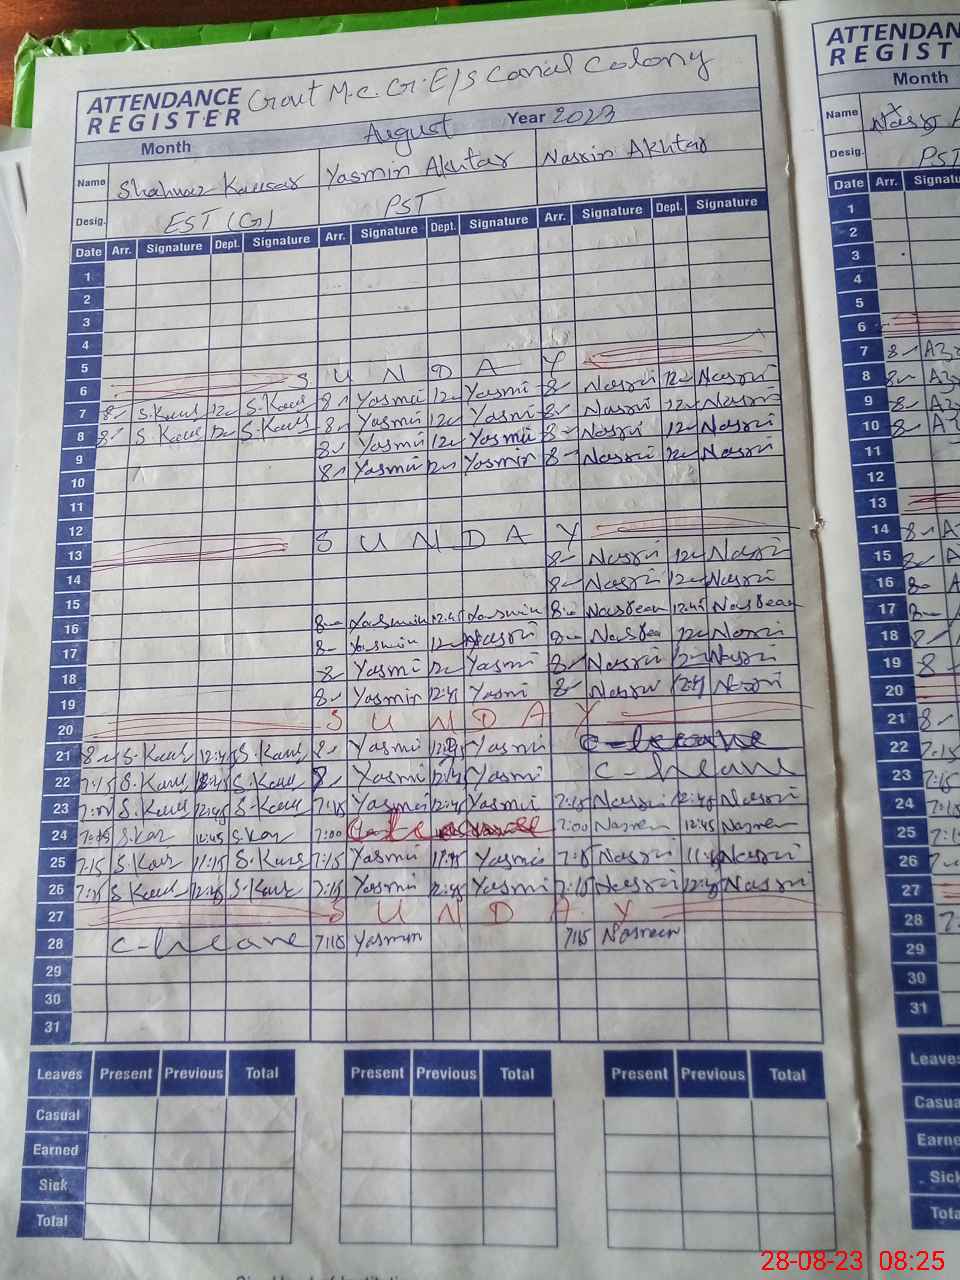 ATTENDANCE REGISTER Govt M.C. G.E/S Canal Colony
Month August Year 2023
Name Shahnaz Kausar Yasmin Akhtar Nasrin Akhtar
Desig. EST (G) PST
Date Arr. Signature Dept. Signature Arr. Signature Dept. Signature Arr. Signature Dept. Signature
1
2
3
4
5
6 S U N D A Y
7 8 S.Kaus 12 S.Kaus 8 Yasmi 12 Yasmi 8 Nasri 12 Nasri
8 8 S.Kaus 12 S.Kaus 8 Yasmi 12 Yasmi 8 Nasri 12 Nasri
9 8 Yasmi 12 Yasmi 8 Nasri 12 Nasri
10 8 Yasmi 12 Yasmin 8 Nasri 12 Nasri
11
12
13 S U N D A Y
14 8 Nasri 12 Nasri
15 8 Nasri 12 Nasri
16 8 Yasmin 12:45 Yasmin 8 Nasreen 12:45 Nasreen
17 8 Yasmin 12 8 12 Nasri
18 8 Yasmi 12 Yasmi 8 Nasri 12 Nasri
19 8 Yasmin 12:45 Yasmi 8 Nasri 12:45 Nasri
20 S U N D A Y
21 8 S.Kaus 12:45 S.Kaus 8 Yasmi 12:45 Yasmi
22 7:15 S.Kaus 12:45 S.Kaus 8 Yasmi 12:45 Yasmi C-leave
23 7:00 S.Kaus 12:45 S.Kaus 7:15 Yasmi 12:45 Yasmi 7:15 Nasri 12:45 Nasri
24 S.Kau 12:45 S.Kau 7:00 7:00 Nasreen 12:45 Nasreen
25 7:15 S.Kaus 11:15 S.Kaus 7:15 Yasmi 11:45 Yasmi 7:15 Nasri 11:45 Nasri
26 7:15 S.Kaus 12:45 S.Kaus 7:15 Yasmi 12:45 Yasmi 7:15 Nasri 12:45 Nasri
27 S U N D A Y
28 C-leave 7:15 Yasmin 7:15 Nasreen
29
30
31
Leaves Present Previous Total Present Previous Total Present Previous Total
Casual
Earned
Sick
Total
ATTENDAN
REGIST
Month
Name
Desig. PST
Date Arr. Signatu
1
2
3
4
5
6
7 8
8 8
9 8
10 8
11
12
13
14 8
15 8
16 8
17 8
18 8
19 8
20
21 8
22 7:15
23 7:15
24 7:15
25
26
27
28
29
30
31
Leaves
Casua
Earne
Sick
Tota
28-08-23 08:25